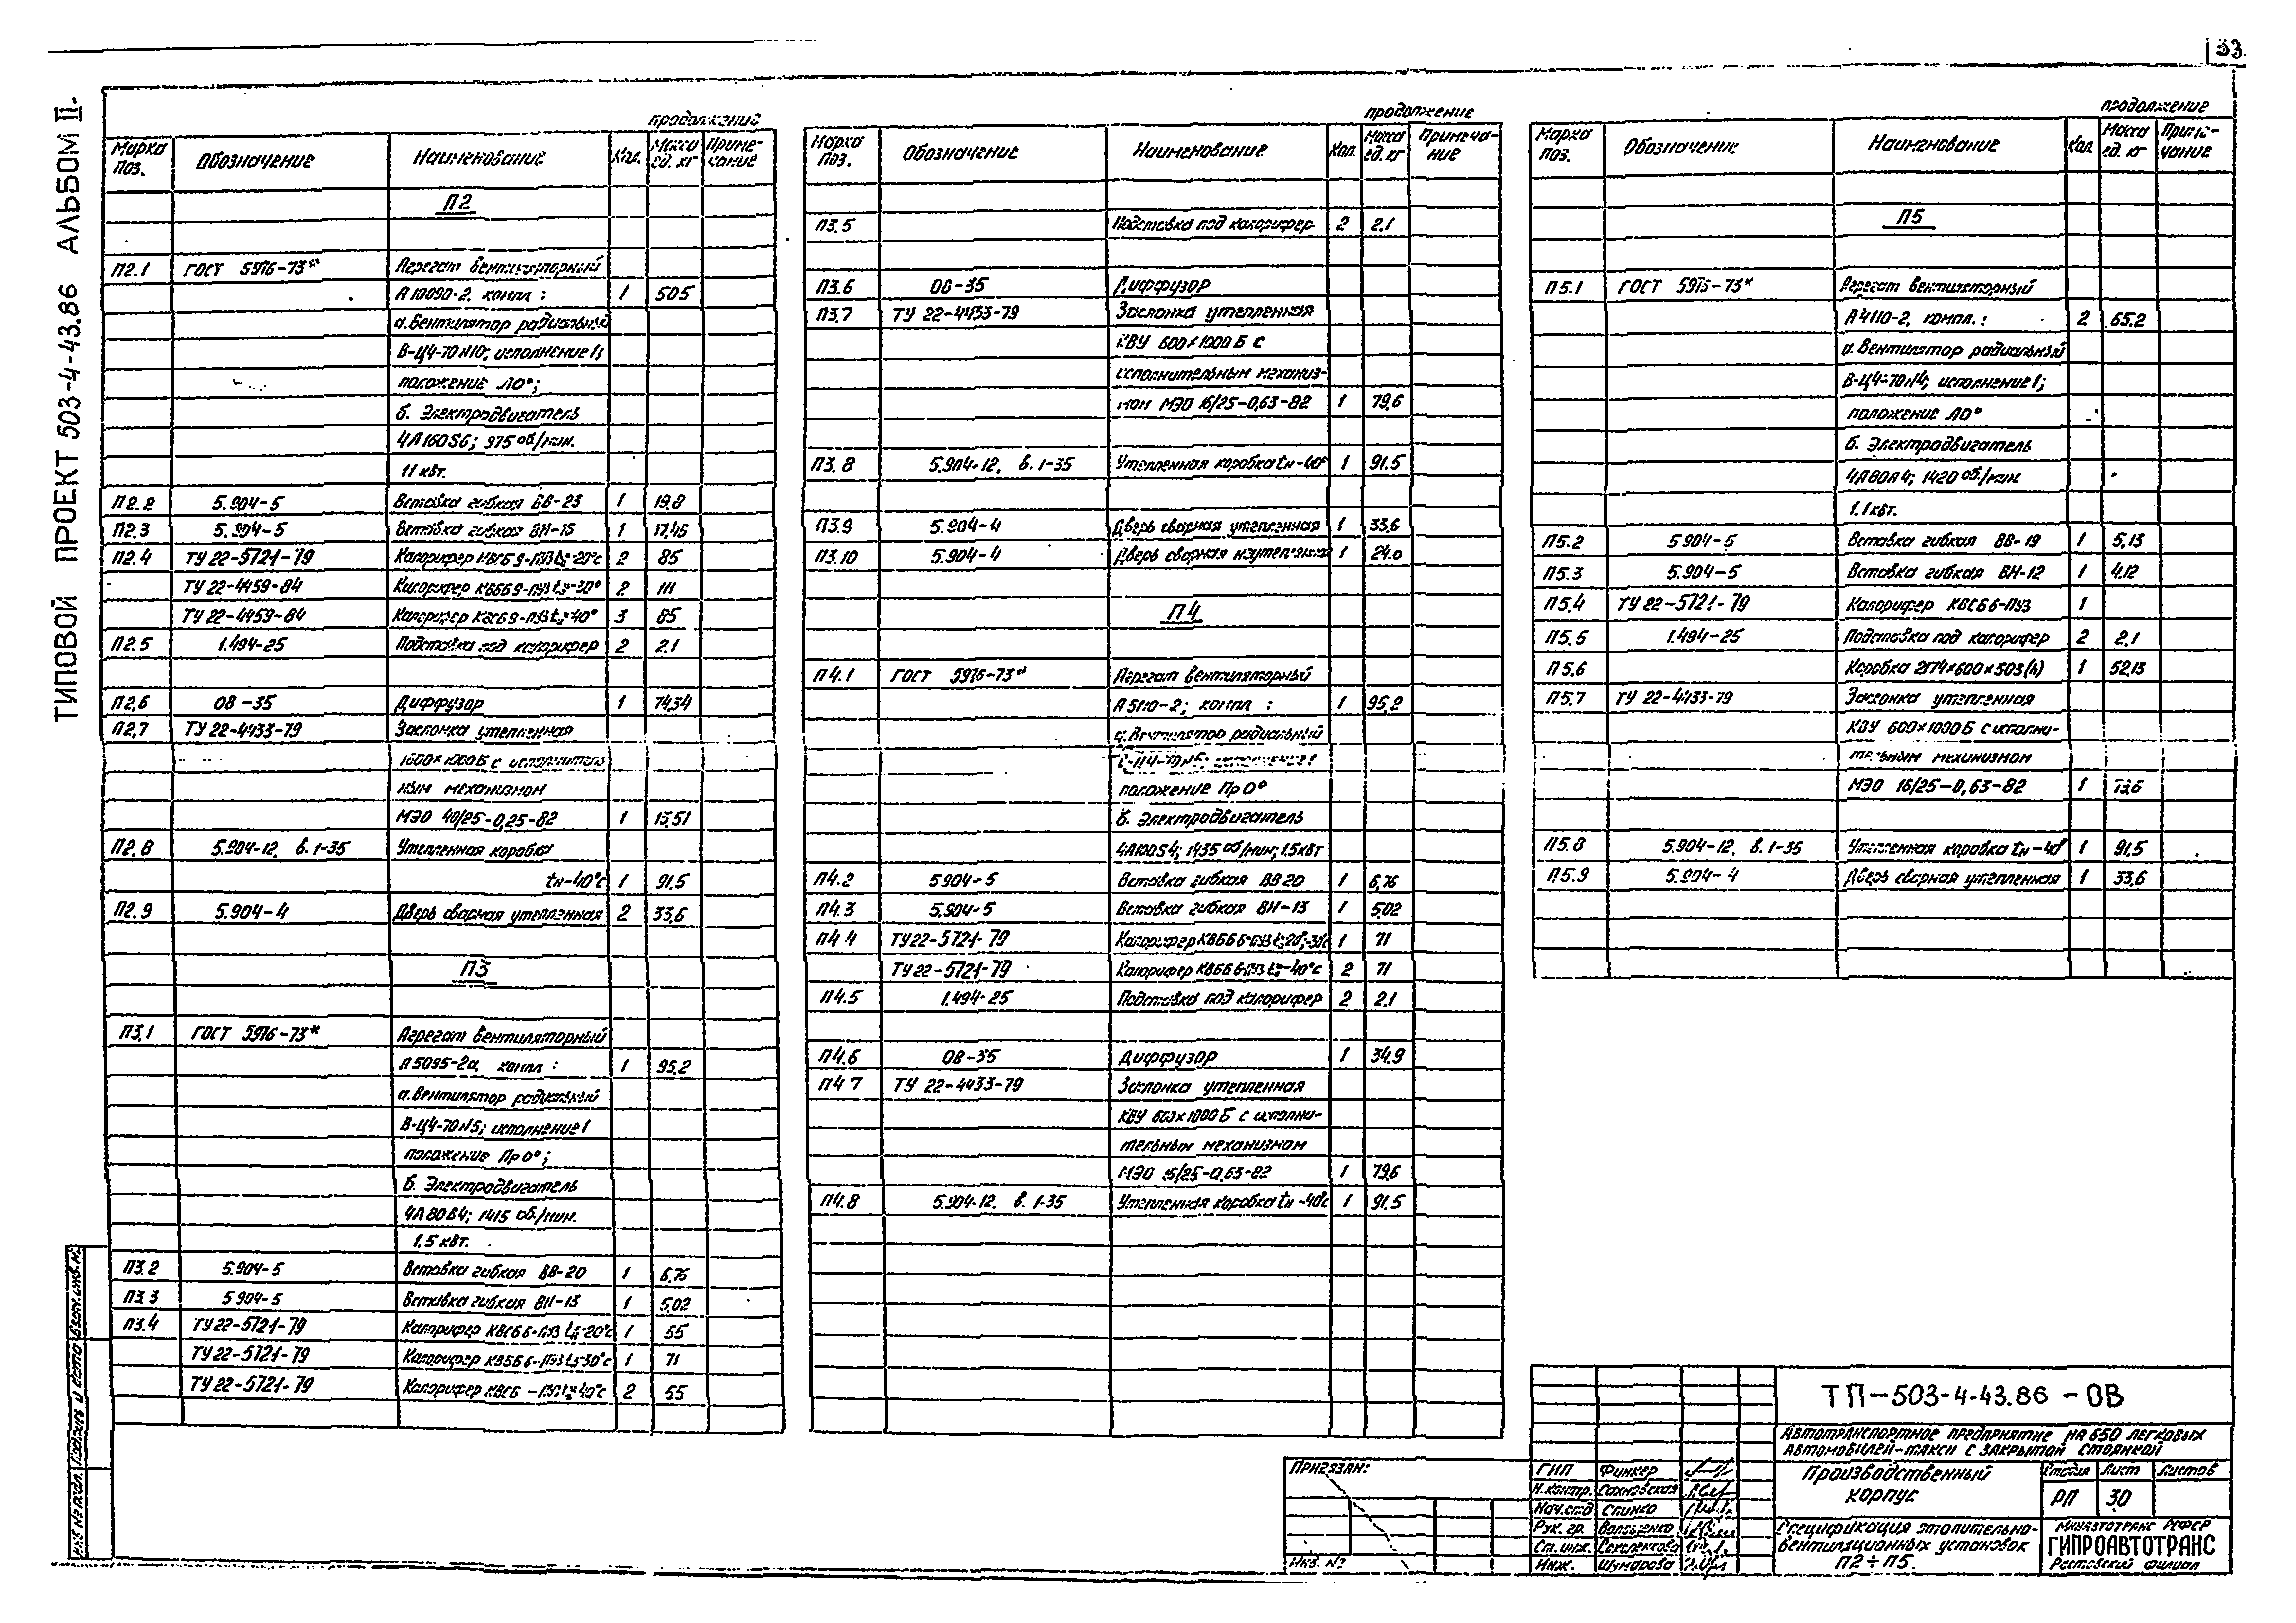 33
ТИПОВОЙ ПРОЕКТ 503-4-43.86 АЛЬБОМ II.
продолжение
Марка Поз. Обозначение Наименование Кол. Масса ед. кг Приме-чание
П2
П2.1 ГОСТ 5976-73* Агрегат вентиляторный
А10090-2, компл : 1 505
а. Вентилятор радиальный
В-Ц4-70 N10; исполнение 1;
положение Л0°;
б. Электродвигатель
4А160S6; 975 об/мин.
11 квт.
П2.2 5.904-5 Вставка гибкая ВВ-23 1 19.8
П2.3 5.904-5 Вставка гибкая ВН-16 1 17,45
П2.4 ТУ 22-5721-79 Калорифер КВСБ 9-ПУ3 tн-20°с 2 85
ТУ 22-4459-84 Калорифер КВББ 9-ПУ3 tн-30° 2 111
ТУ 22-4459-84 Калорифер КВСБ 9-ПУ3 tн-40° 3 85
П2.5 1.494-25 Подставка под калорифер 2 2.1
П2,6 08-35 Диффузор 1 74,34
П2,7 ТУ 22-4433-79 Заслонка утепленная
1600×1000Б с исполнитель
ным механизмом
МЭО 40/25-0,25-82 1
П2.8 5.904-12, в. 1-35 Утепленная коробка
tн-40°с 1 91.5
П2.9 5.904-4 Дверь сварная утепленная 2 33,6
П3
П3,1 ГОСТ 5976-73* Агрегат вентиляторный
А5095-2а, компл : 1 95,2
а. Вентилятор радиальный
В-Ц4-70 N5; исполнение 1
положение Пр0°;
б. Электродвигатель
4А80В4; 1415 об./мин.
1.5 квт.
П3.2 5.904-5 Вставка гибкая ВВ-20 1 6,76
П3.3 5.904-5 Вставка гибкая ВН-13 1 5,02
П3.4 ТУ 22-5721-79 Калорифер КВСБ 6-ПУ3 tн-20°с 1 55
ТУ 22-5721-79 Калорифер КВББ 6-ПУ3 tн-30°с 1 71
ТУ 22-5721-79 Калорифер КВСБ -ПУ3 tн-40°с 2 55
продолжение
Марка Поз. Обозначение Наименование Кол. Масса ед. кг Примеча-ние
П3.5 Подставка под калорифер 2 2.1
П3.6 08-35 Диффузор
П3.7 ТУ 22-4433-79 Заслонка утепленная
КВУ 600×1000 Б с
исполнительным механиз-
мом МЭО 16/25-0,63-82 1 79,6
П3.8 5.904-12, в. 1-35 Утепленная коробка tн-40° 1 91.5
П3.9 5.904-4 Дверь сварная утепленная 1 33,6
П3.10 5.904-4 Дверь сварная неутепленная 1 24.0
П4
П4.1 ГОСТ 5976-73* Агрегат вентиляторный
А5110-2; компл : 1 95,2
а. Вентилятор радиальный
исполнение 1
положение Пр0°
б. Электродвигатель
4А100S4; 1435 об/мин; 1.5квт
П4.2 5904-5 Вставка гибкая ВВ 20 1 6,76
П4.3 5.904-5 Вставка гибкая ВН-13 1 5,02
П4 4 ТУ22-5721-79 Калорифер КВББ 6-ПУ3 tн-20°,-30°с 1 71
ТУ22-5721-79 Калорифер КВББ 6-ПУ3 tн-40°с 2 71
П4.5 1.494-25 Подставка под калорифер 2 2.1
П4.6 08-35 Диффузор 1 34.9
П4 7 ТУ 22-4433-79 Заслонка утепленная
КВУ 600×1000Б с исполни-
тельным механизмом
МЭО 16/25-0,63-82 1 79,6
П4.8 5.904-12, в. 1-35 Утепленная коробка tн -40°с 1 91.5
продолжение
Марка поз. Обозначение Наименование Кол. Масса ед. кг Приме-чание
П5
П5.1 ГОСТ 5976-73* Агрегат вентиляторный
А4110-2, компл. : 2 65,2
а. Вентилятор радиальный
В-Ц4-70 N4; исполнение 1;
положение Л0°
б. Электродвигатель
4А80А4; 1420 об/мин
1.1 квт.
П5.2 5904-5 Вставка гибкая ВВ-19 1 5,13
П5.3 5.904-5 Вставка гибкая ВН-12 1 4,12
П5,4 ТУ 22-5721-79 Калорифер КВСБ 6-ПУ3 1
П5,5 1.494-25 Подставка под калорифер 2 2.1
П5,6 Коробка 2174×600×503(h) 1 52,13
П5.7 ТУ 22-4433-79 Заслонка утепленная
КВУ 600×1000 Б с исполни-
тельным механизмом
МЭО 16/25-0,63-82 1
П5.8 5.904-12, в. 1-35 Утепленная коробка tн-40° 1 91,5
П5.9 5.904-4 Дверь сварная утепленная 1 33,6
Взам. инв. №
Подпись и дата
Инв № подл.
Привязан:
Инв. №
ГИП Финкер
Н.контр. Сахновская
Нач.отд Спинко
Рук. гр.
Ст. инж.
Инж. Шумарова
ТП-503-4-43.86 -ОВ
Автотранспортное предприятие на 650 легковых
автомобилей-такси с закрытой стоянкой
Производственный корпус
Стадия Лист Листов
РП 30
Спецификация отопительно-
вентиляционных установок
П2÷П5.
Минавтотранс РСФСР
ГИПРОАВТОТРАНС
Ростовский филиал